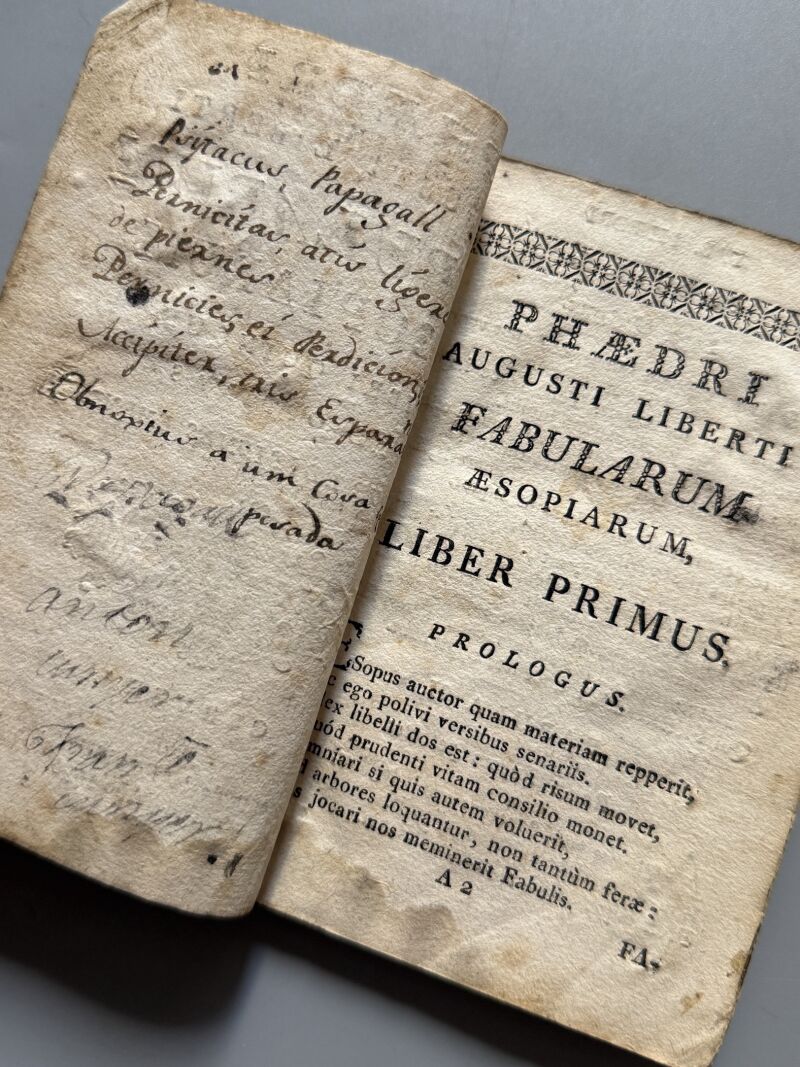 Psÿtacus, Papagall
Pernicitas, atis
de piernes
Pernicies, ei Perdicion,
Accipiter, tris
Obnoxius a um Cosa
posada
antoni
PHÆDRI
AUGUSTI LIBERTI
FABULARUM
ÆSOPIARUM,
LIBER PRIMUS.
PROLOGUS.
ESopus auctor quam materiam repperit,
ego polivi versibus senariis.
ex libelli dos est: quòd risum movet,
prudenti vitam consilio monet.
mniari si quis autem voluerit,
arbores loquantur, non tantùm feræ:
s jocari nos meminerit Fabulis.
A 2
FA-